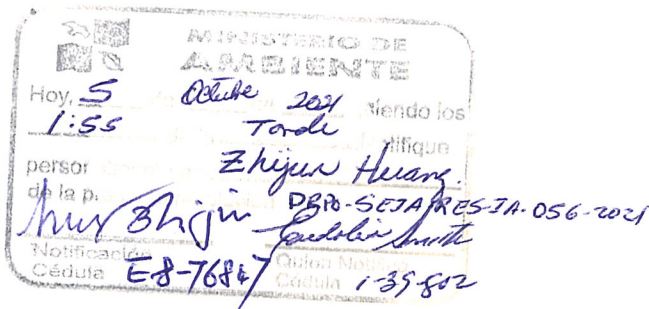 MINISTERIO DE
AMBIENTE
Hoy, 5 Octubre 2021 siendo los
1:55 Tarde notifique
person Zhijun Huang.
de la p. DRPO-SEIA-RES-IA-056-2021
Zhijun
Notificación Quien Notifica
Cédula E-8-76847 Cédula 1-39-802